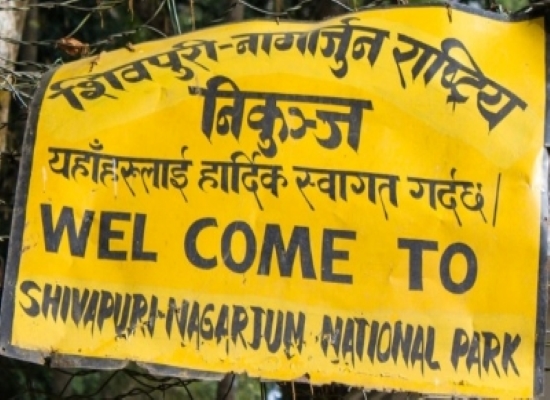 शिवपुरी-नागार्जुन राष्ट्रिय
निकुञ्ज
यहाँहरूलाई हार्दिक स्वागत गर्दछ।
WEL COME TO
SHIVAPURI-NAGARJUN NATIONAL PARK